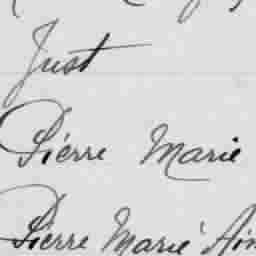 Just
Piérre Marie
Pierre Marie